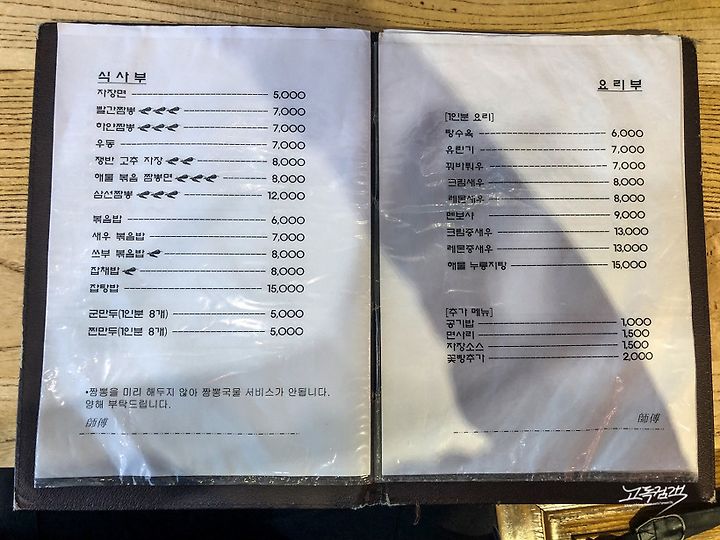 식사부
자장면 5,000
빨간짬뽕 7,000
하얀짬뽕 7,000
우동 7,000
쟁반 고추 자장 8,000
해물 볶음 짬뽕면 8,000
삼선짬뽕 12,000
볶음밥 6,000
새우 볶음밥 7,000
쓰부 볶음밥 8,000
잡채밥 8,000
잡탕밥 15,000
군만두(1인분 8개) 5,000
찐만두(1인분 8개) 5,000
•짬뽕을 미리 해두지 않아 짬뽕국물 서비스가 안됩니다.
양해 부탁드립니다.
師傅
요리부
[1인분 요리]
탕수육 6,000
유린기 7,000
꿔바뤄우 7,000
크림새우 8,000
레몬새우 8,000
멘보샤 9,000
크림중새우 13,000
레몬중새우 13,000
해물 누룽지탕 15,000
[추가 메뉴]
공기밥 1,000
면사리 1,500
자장소스 1,500
꽃빵추가 2,000
師傅
고독검객